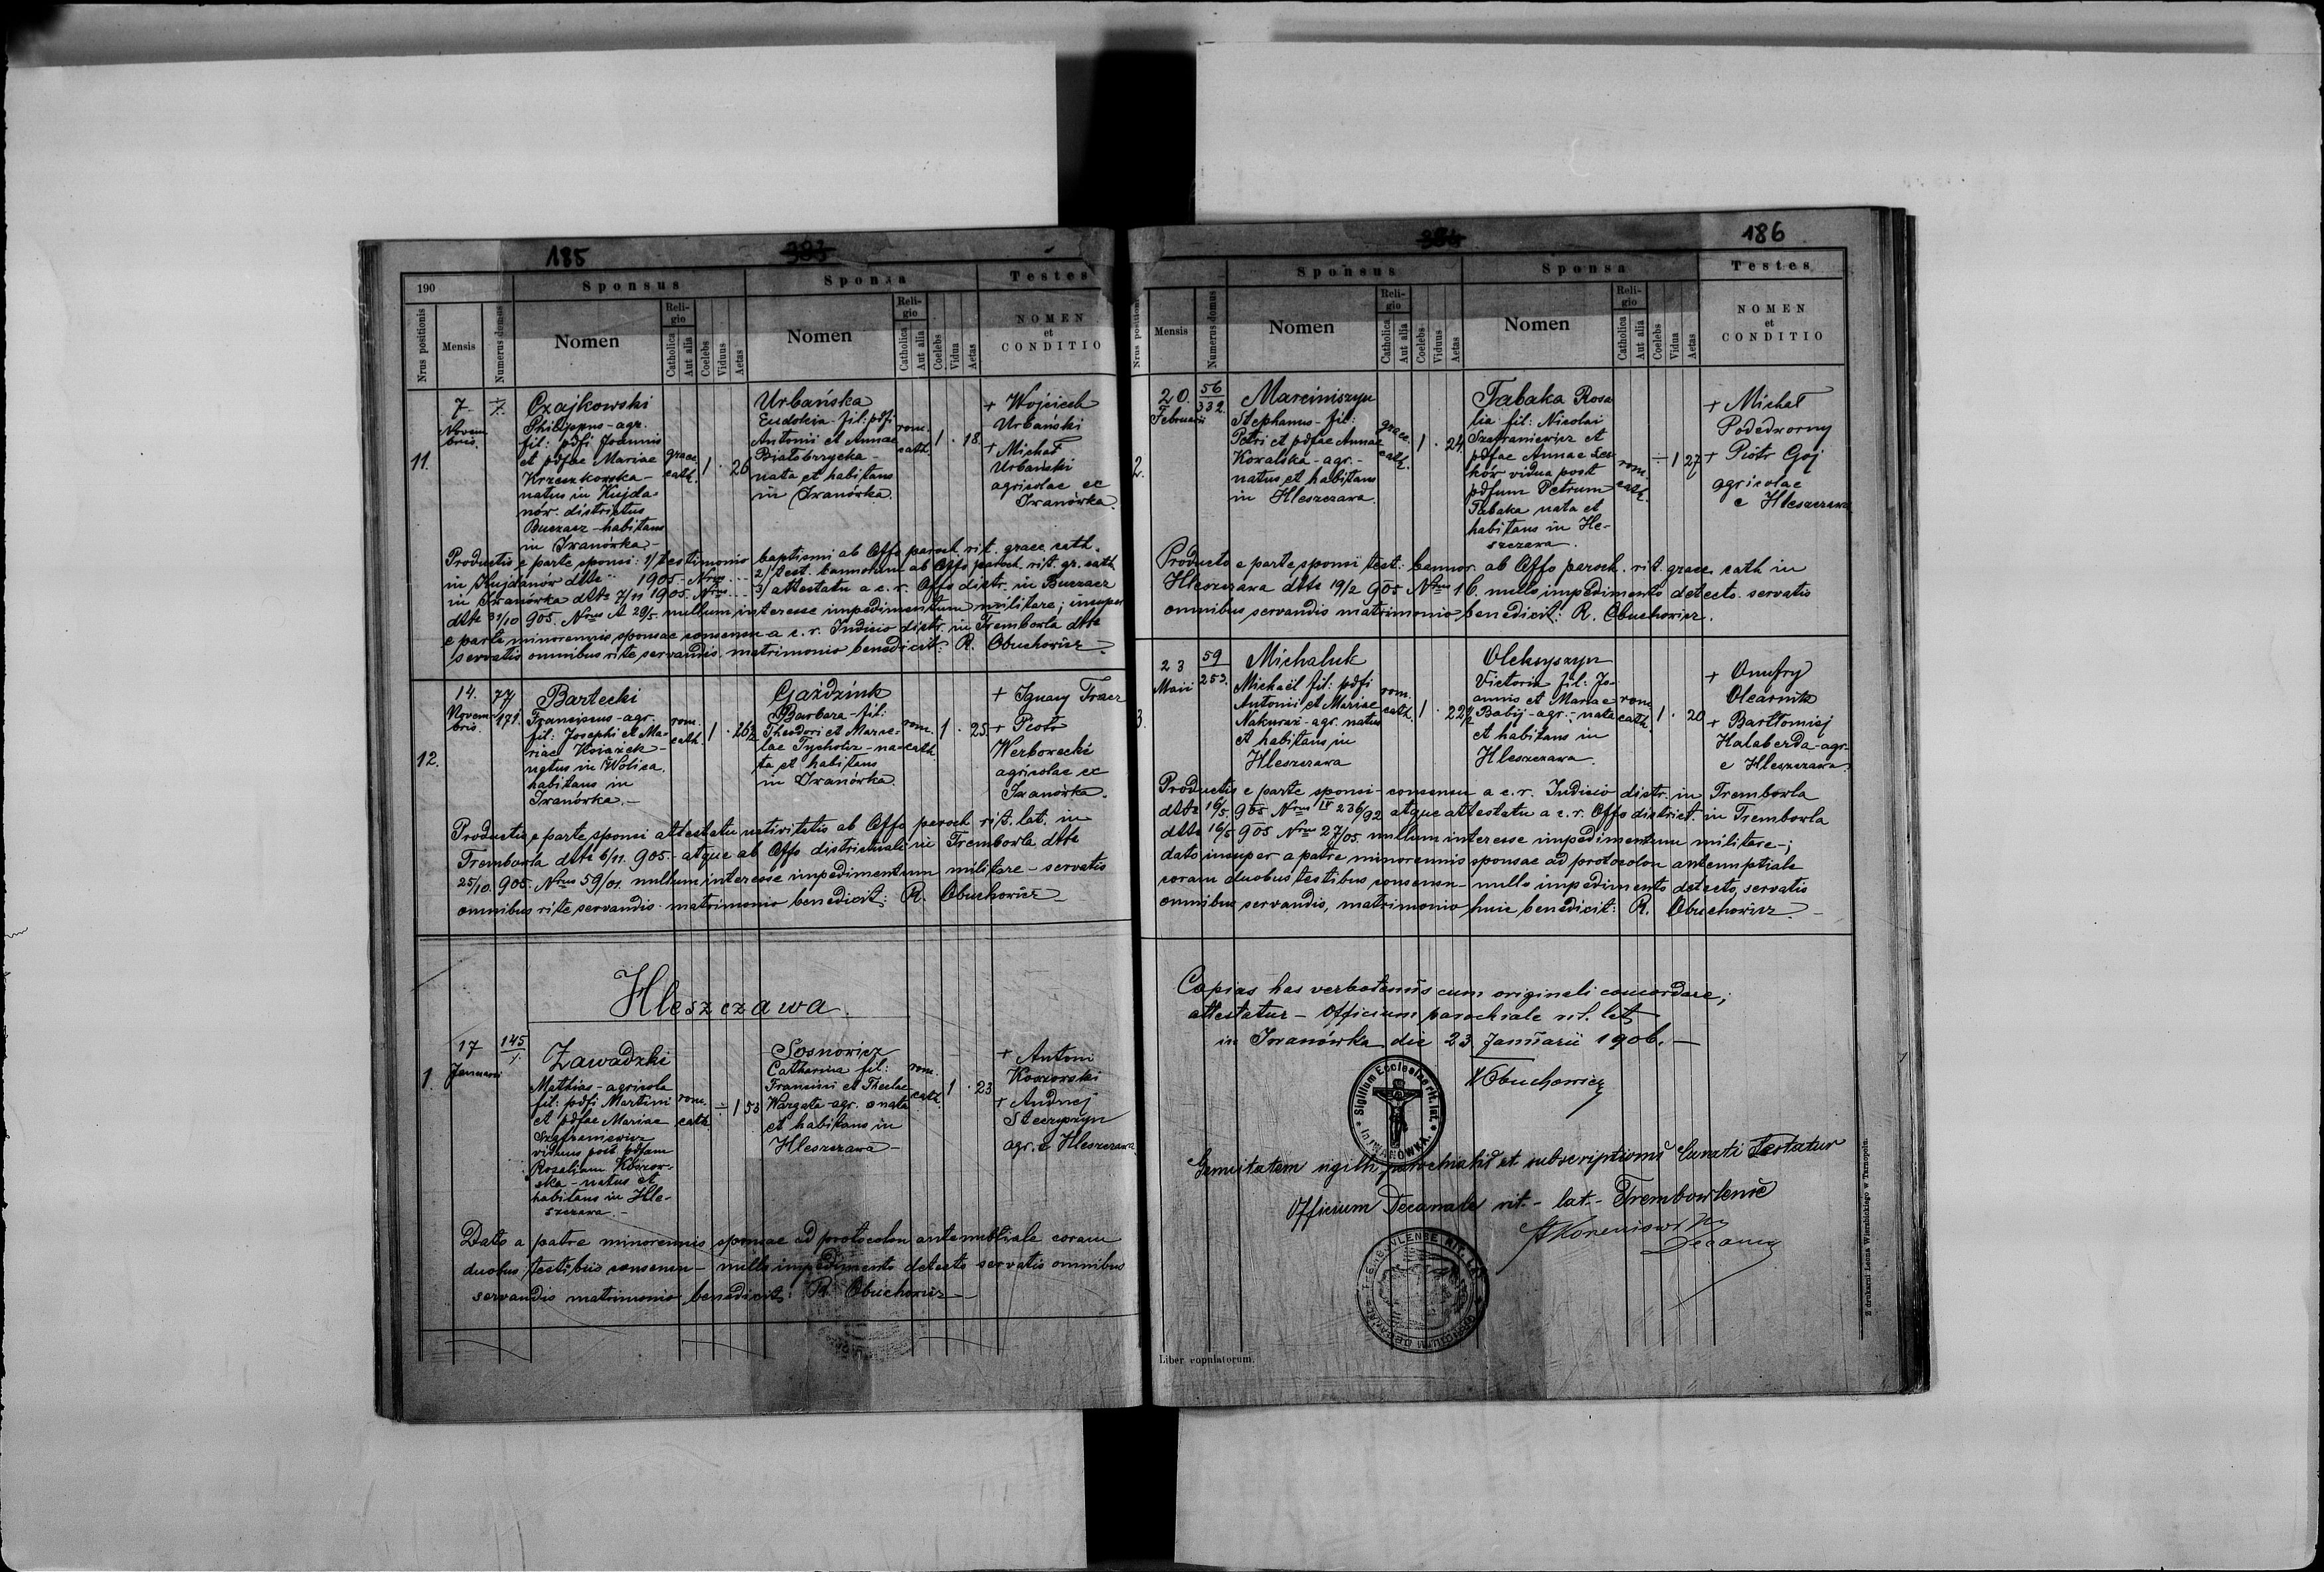 185
383
190
Sponsus
Sponsa
Testes
Nrus positionis
Mensis
Numerus domus
Nomen
Reli-
gio
Catholica
Aut alia
Coelebs
Viduus
Aetas
Nomen
Reli-
gio
Catholica
Aut alia
Coelebs
Vidua
Aetas
NOMEN
et
CONDITIO
11.
7
Novem
bris.
Czajkowski
Philippus - agr.
fil: pdfi Joannis
et pdfae Mariae
Krzeszkowska -
natus in Kujda-
nów. districtus
Buczacz - habitans
in Iwanówka -
graec.
cath.
1 . 26
Urbańska
Eudokia - fil: pdfi
Antonii et Annae
Białobrzycka -
nata et habitans
in Iwanówka.
rom.
cath.
1 . 18.
+ Wojciech
Urbański
+ Michał
Urbański
agricolae ex
Iwanówka.
Productis e parte sponsi: 1/ testimonio baptismi ab Offo paroch. rit. graec. cath.
in Kujdanów dtto .. 1905 - Nrus ... 2/ test. bannorum ab Offo paroch. rit. gr. cath
in Iwanówka dtto 7/11 1905. Nrus ... 3/ attestatu a c. r. Offo distr. in Buczacz
dtto 31/10 905. Nrus A 29/5 nullum interesse impedimentum militare; insuper
e parte minorennis sponsae consensu a c. r. Judicio distr. in Trembowla dtto
servatis omnibus rite servandis. matrimonio benedicit: R. Obuchowicz
12.
14.
Novem
bris.
77
171.
Bartecki
Franciscus - agr.
fil: Josephi et Ma-
riae Książek -
natus in Wolica.
habitans in
Iwanówka. -
rom.
cath.
1 . 26½
Gaździuk
Barbara - fil:
Theodori et Marce-
lae Tycholiz - na-
ta et habitans
in Iwanówka
rom.
cath.
1 . 25.
+ Ignacy Tracz
+ Piotr
Werbowecki
agricolae ex
Iwanówka.
Productis e parte sponsi attestatu nativitatis ab Offo paroch rit. lat. in
Trembowla dtto 6/11. 905. - atque ab Offo districtuali in Trembowla dtto
25/10. 905. Nrus 59/01. nullum interesse impedimentum militare - servatis
omnibus rite servandis matrimonio benedicit: R. Obuchowicz -
Hleszczawa.
1.
17
Januarii
145
Zawadzki
Mathias - agricola
fil: pdfi Martini
et pdfae Mariae
Szafraniewicz
viduus post pdfam
Rosaliam Kossow-
ska - natus et
habitans in Hle-
szczawa. -
rom.
cath.
÷ 1 53
Sosnowicz
Catharina fil:
Francisci et Theclae
Wargata - agr. nata
et habitans in
Hleszczawa -
rom.
cath.
1 . 23
+ Antoni
Kossowski
+ Andrzej
Steczyszyn
agr. e Hleszczawa
Dato a patre minorennis sponsae ad protocolon antenuptiale coram
duobus testibus consensu - nullo impedimento detecto servatis omnibus
servandis matrimonio benedicit: R. Obuchowicz
384
186
Sponsus
Sponsa
Testes
Nrus positionis
Mensis
Numerus domus
Nomen
Reli-
gio
Catholica
Aut alia
Coelebs
Viduus
Aetas
Nomen
Reli-
gio
Catholica
Aut alia
Coelebs
Vidua
Aetas
NOMEN
et
CONDITIO
2.
20.
Februarii
56
332.
Marciniszyn
Stephanus - fil:
Petri et pdfae Annae
Kowalska - agr. -
natus et habitans
in Hleszczawa.
graec.
cath.
1 . 24.
Tabaka Rosa
lia fil: Nicolai
Szafraniewicz et
pdfae Annae
vidua post
pdfum Petrum
Tabaka nata et
habitans in Hle-
szczawa.
rom.
cath.
÷ 1 27
+ Michał
Podedworny
+ Piotr Goj
agricolae
e Hleszczawa
Producto e parte sponsi test: bannor. ab Offo paroch. rit. graec. cath in
Hleszczawa dtto 19/2 905 Nrus 16. nullo impedimento detecto. servatis
omnibus servandis matrimonio benedicit: R. Obuchowicz.
3.
23
Maii
59
253.
Michaluk
Michaël fil: pdfi
Antonii et Mariae
Nakuraz - agr. natus
et habitans in
Hleszczawa
rom.
cath.
1 . 22½
Oleksyszyn
Victoria fil: Jo-
annis et Mariae
Babij - agr. - nata
et habitans in
Hleszczawa.
rom.
cath.
1 . 20
+ Onufry
Olearnik
+ Bartłomiej
Halaberda - agr.
e Hleszczawa.
Productis e parte sponsi - consensu a c. r. Judicio distr. in Trembowla
dtto 16/5. 905 Nrus IV 236/92 atque attestatu a c. r. Offo district. in Trembowla
dtto 16/5 905 Nrus 27/05. nullum interesse impedimentum militare -;
dato insuper a patre minorennis sponsae ad protocolon antenuptiale
coram duobus testibus consensu - nullo impedimento detecto, servatis
omnibus servandis, matrimonio huic benedicit: R. Obuchowicz -
Copias has verbotenus cum originali concordare;
attestatur - Officium parochiale rit. lat.
in Iwanówka die 23. Januarii 1906. -
Obuchowicz
Sigillum Ecclesiae rit. lat. in IWANÓWKA.
Genuitatem sigilli parochialis et subscriptionis Curati Testatur
Officium Decanale rit. - lat. - Trembowlense
Decanus
Liber copulatorum.
Z drukarni Leona Wierzbickiego w Tarnopolu.